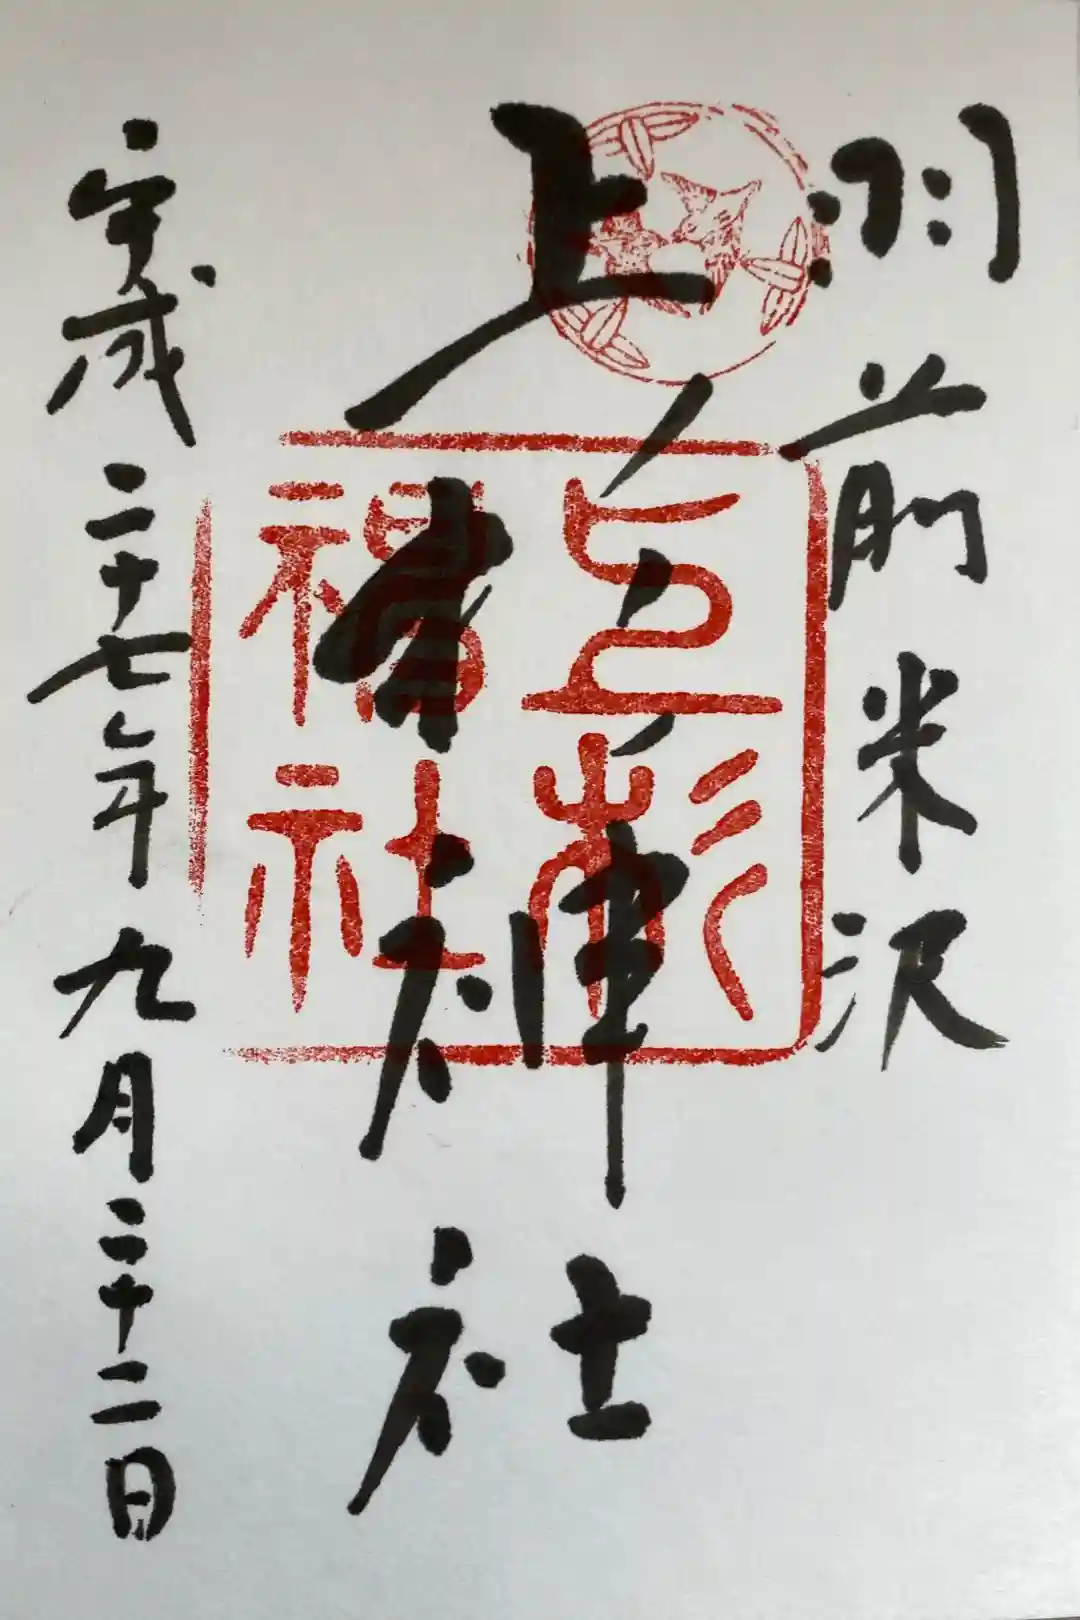 羽前米沢
上杉神社
平成二十七年九月二十二日
上杉神社